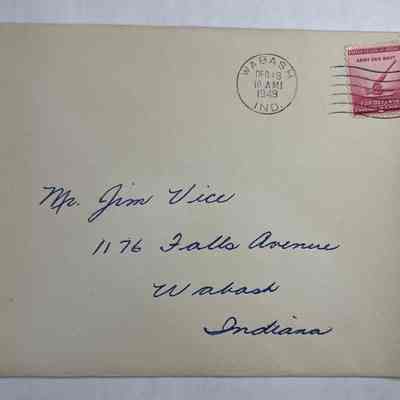 WABASH
DEC 18
10 AM
1949
IND.
ARMY AND NAVY
FOR DEFENSE
Mr. Jim Vice
1176 Falls Avenue
Wabash
Indiana